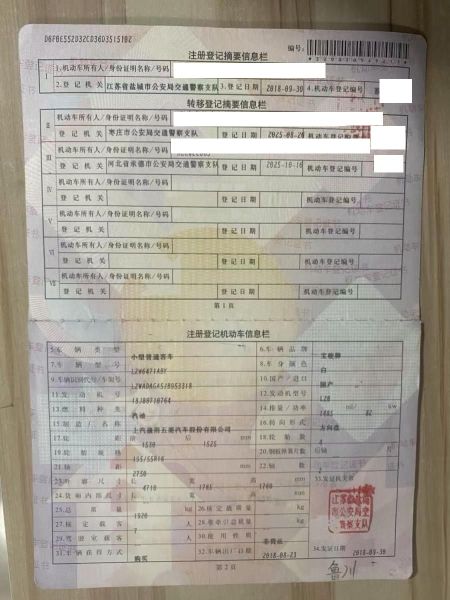 D6FBE552D32CD36D3S151BZ
编号:
注册登记摘要信息栏
Ⅰ 1.机动车所有人/身份证明名称/号码
2.登 记 机 关 江苏省盐城市公安局交通警察支队 3.登记日期 2018-09-30 4.机动车登记编号
转移登记摘要信息栏
Ⅱ 机动车所有人/身份证明名称/号码
登 记 机 关 枣庄市公安局交通警察支队 登 记 日 期 2025-08-20 机动车登记编号
Ⅲ 机动车所有人/身份证明名称/号码
登 记 机 关 河北省承德市公安局交通警察支队 登 记 日 期 2025-10-16 机动车登记编号
Ⅳ 机动车所有人/身份证明名称/号码
登 记 机 关 登 记 日 期 机动车登记编号
Ⅴ 机动车所有人/身份证明名称/号码
登 记 机 关 登 记 日 期 机动车登记编号
Ⅵ 机动车所有人/身份证明名称/号码
登 记 机 关 登 记 日 期 机动车登记编号
Ⅶ 机动车所有人/身份证明名称/号码
登 记 机 关 登 记 日 期 机动车登记编号
第 1 页
注册登记机动车信息栏
5.车 辆 类 型 小型普通客车 6.车 辆 品 牌 宝骏牌
7.车 辆 型 号 LZW6471ABY 8.车 身 颜 色 白
9.车辆识别代号/车架号 LZWADAGA5JB953318 10.国 产 / 进 口 国产
11.发 动 机 号 18JB9710764 12.发动机型号 L2B
13.燃 料 种 类 汽油 14.排量/功率 1485 ml/ kw
15.制 造 厂 名 称 上汽通用五菱汽车股份有限公司 16.转 向 形 式 方向盘
17.轮 距 前 1530 后 1525 mm 18.轮 胎 数 4
19.轮 胎 规 格 195/55R16 20.钢板弹簧片数 后轴 片
21.轴 距 2750 mm 22.轴 数 2
23.外 廓 尺 寸 长 4710 宽 1785 高 1760 mm 33.发证机关章
24.货厢内部尺寸 长 宽 高 mm
25.总 质 量 1920 kg 26.核定载质量 kg
27.核 定 载 客 7 人 28.准牵引总质量 kg
29.驾 驶 室 载 客 人 30.使 用 性 质 非营运
31.车辆获得方式 购买 32.车辆出厂日期 2018-08-23 34.发证日期 2018-09-30
第 2 页